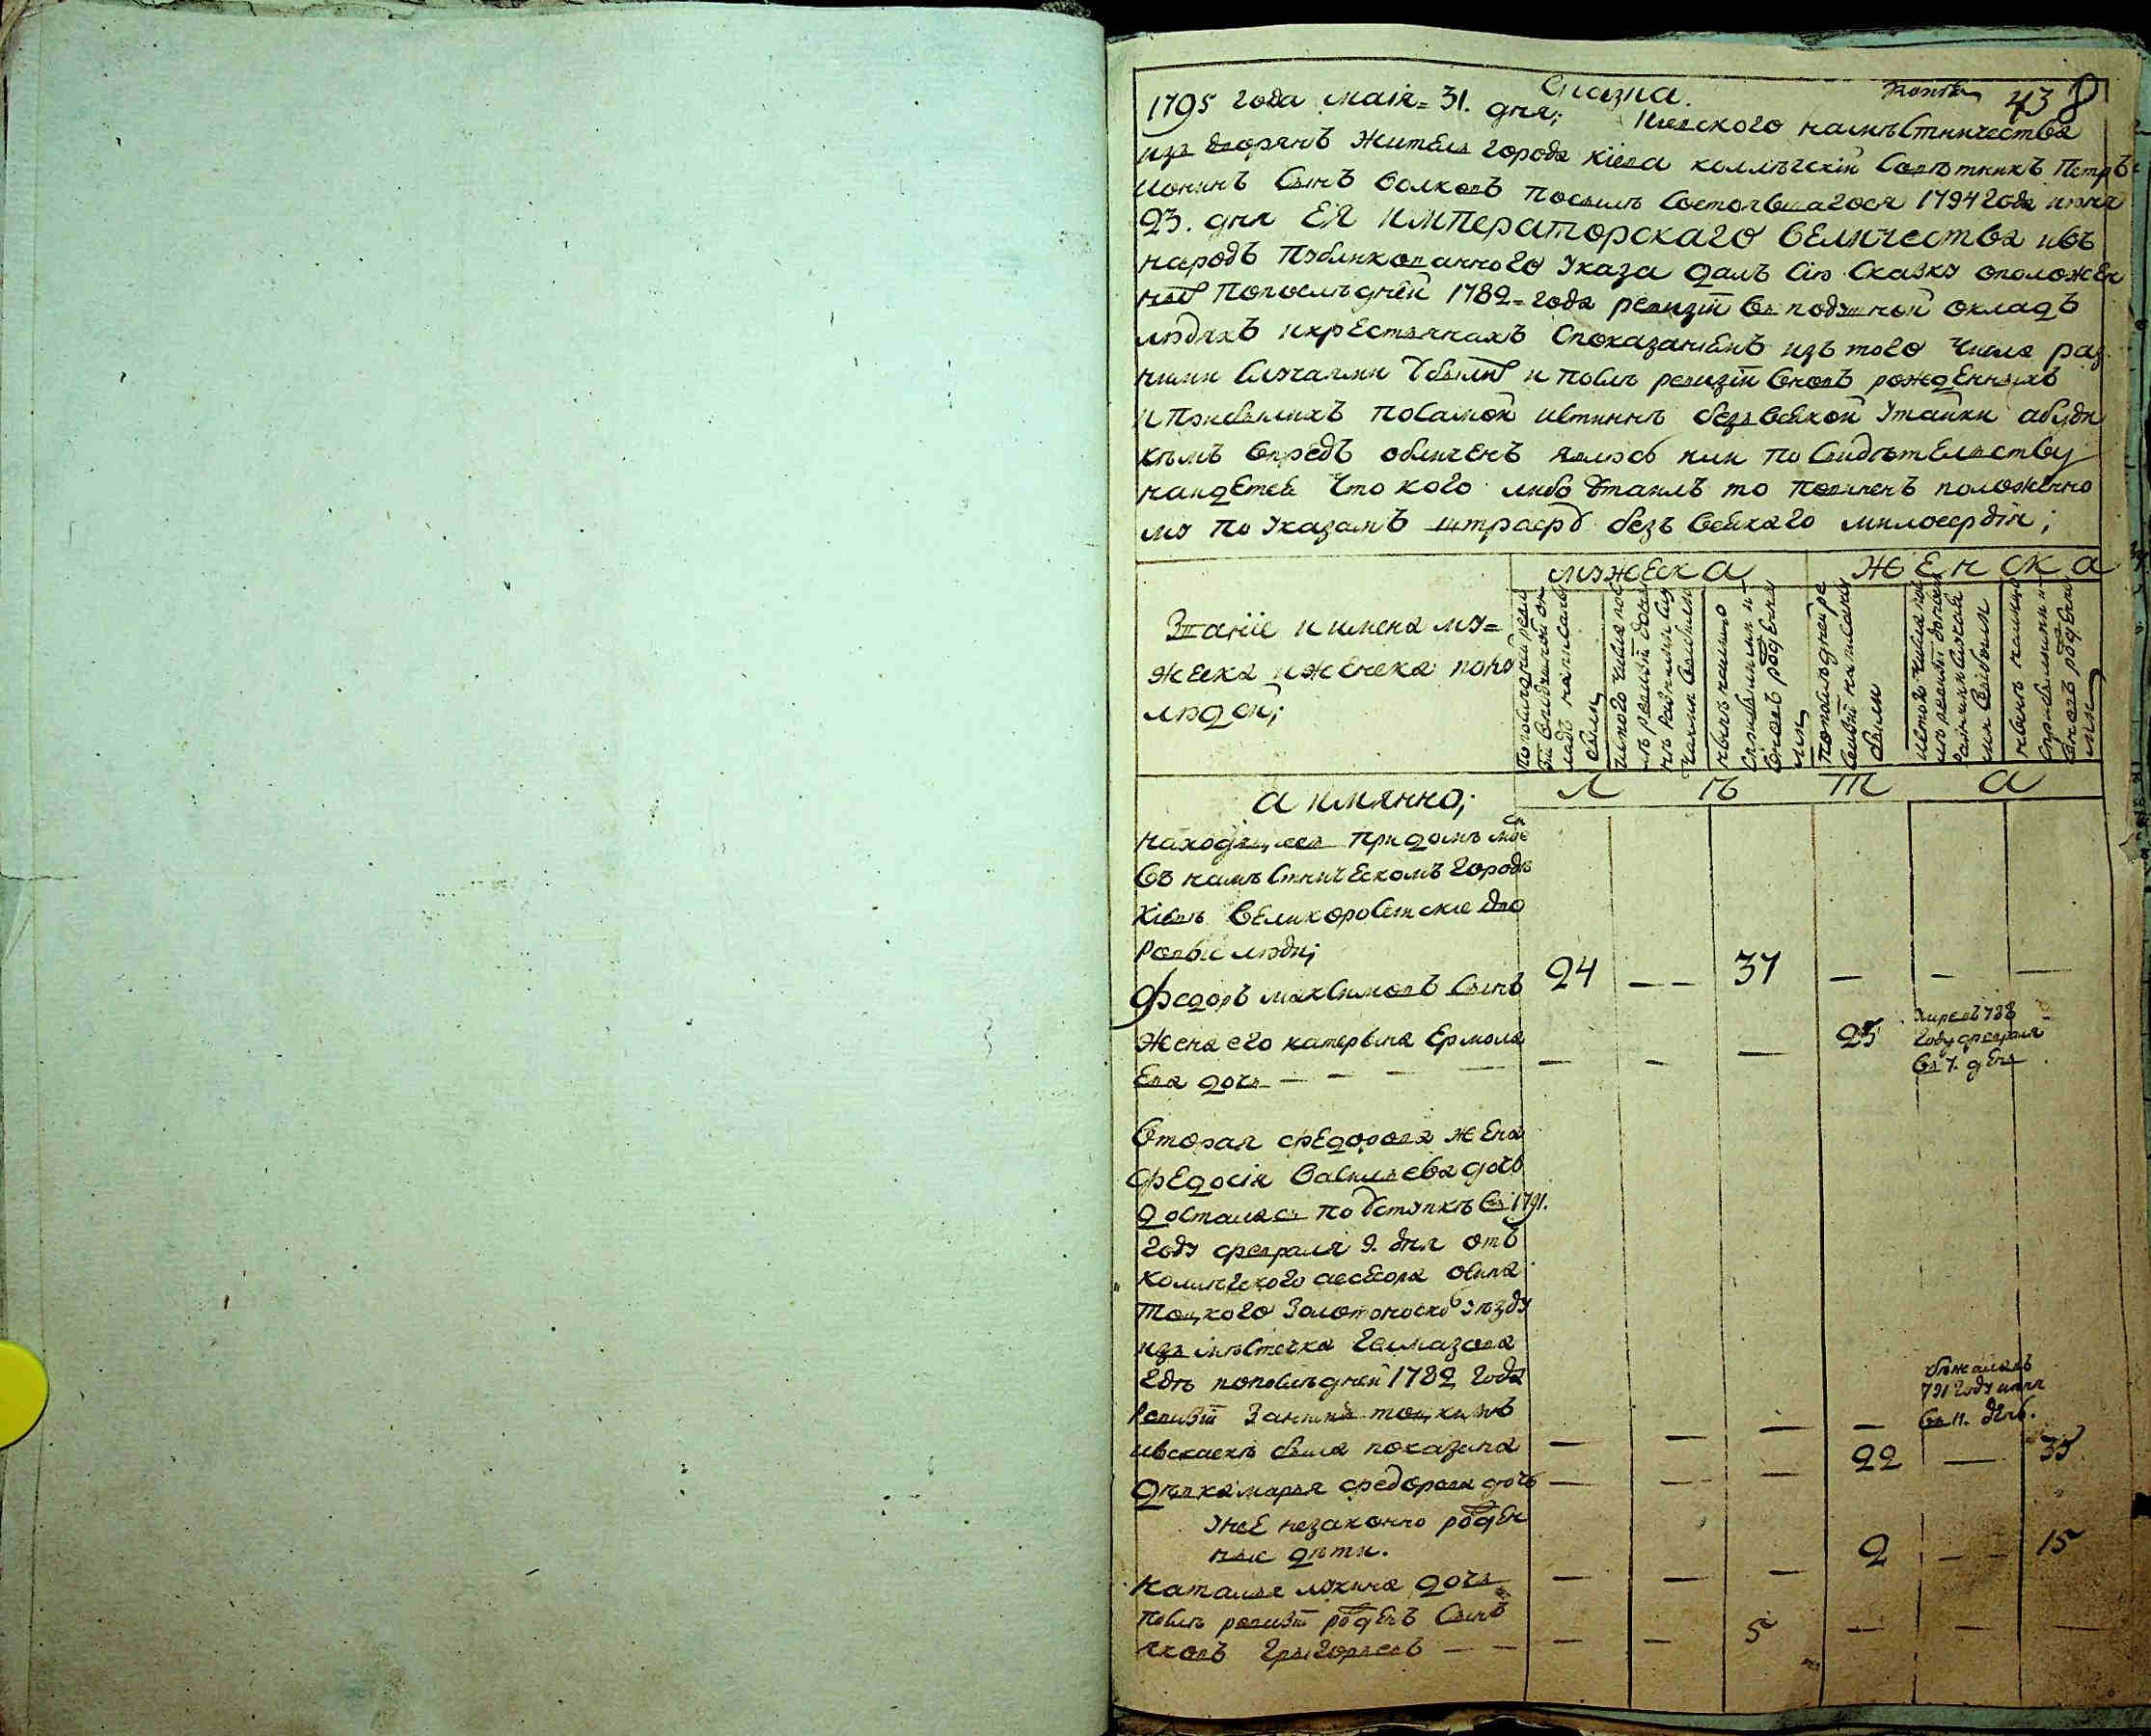 Сказка. 438
1795 года маія 31. дня; Киевского намѣстничества
изъ дворянъ житель города Кіева коллѣгскій Совѣтникъ Петръ
Ионинъ Сынъ Волковъ посилѣ Состоявшагося 1794 года июня
23. дня ЕЯ ИМПЕРАТОРСКАГО ВЕЛИЧЕСТВА ивъ
народъ Публикованного Указа далъ Сію Сказку оположен
ныхъ Попослѣдней 1782 года ревизіи въ подушной окладъ
людяхъ икрестьянахъ Споказаніемъ изъ того Числа раз
ными Случаями Убылыхъ и послѣ ревизіи вновь рожденныхъ
и Прибылыхъ посамой истиннѣ безъ всякой Утайки абуди
кѣмъ впредь обличенъ явлюсь или по Свидѣтельству
найдется Что кого либо Утаилъ то повиненъ положенно
му по Указамъ штрафу безъ всякаго милосердія;
мужеска женска
Званіе и имена му=
жеска иженска полу
людей;
Попослѣдней реви
зіи в подушной ок
ладъ написаны
были
ис того числа пос
лѣ ревизіи до ны
нѣ разными слу
чаями выбыли
нынѣ налицо
Сприбылыми и
вновь рожденны
ми
Попослѣдней ре
визіи написаны
были
ис того числа пос
лѣ ревизіи до ны
нѣ
разными случая
ми выбыли
нынѣ налицо
Сприбылыми и
вновь рожденны
ми
а имянно; л ѣ т а
находящиеся при домѣ моем
въ намѣстническомъ городѣ
Кіевѣ Великоросийские дво
ровые люди;
Федоръ максимовъ Сынъ 24 — — 37 — — —
Жена его катерына Ермола
Ева дочь — — — — — — — 25 умре въ 788
году февраля
въ 7. день
Вторая Федорова жена
Федосія Васильева дочь
досталась по Уступкѣ въ 1791.
году февраля 9. дня отъ
колѣжского асесора
Тоцкого Золотоноско Уезду
изъ мѣстечка Гелмазова
гдѣ попослѣдней 1782 года
Ревизіи Занимъ тоцкимъ
ивскаскѣ была показана — — — — бѣжала въ
791 году июня
въ 11. день.
Дѣвка марья Федорова дочь — — — 22 — 35
Унеё незаконно рожден
ные дѣти.
Наталья лукина дочь — — — 2 — — 15
послѣ ревизіи рожденъ Сынъ
яковъ Григорьевъ — — — — 5 — — —